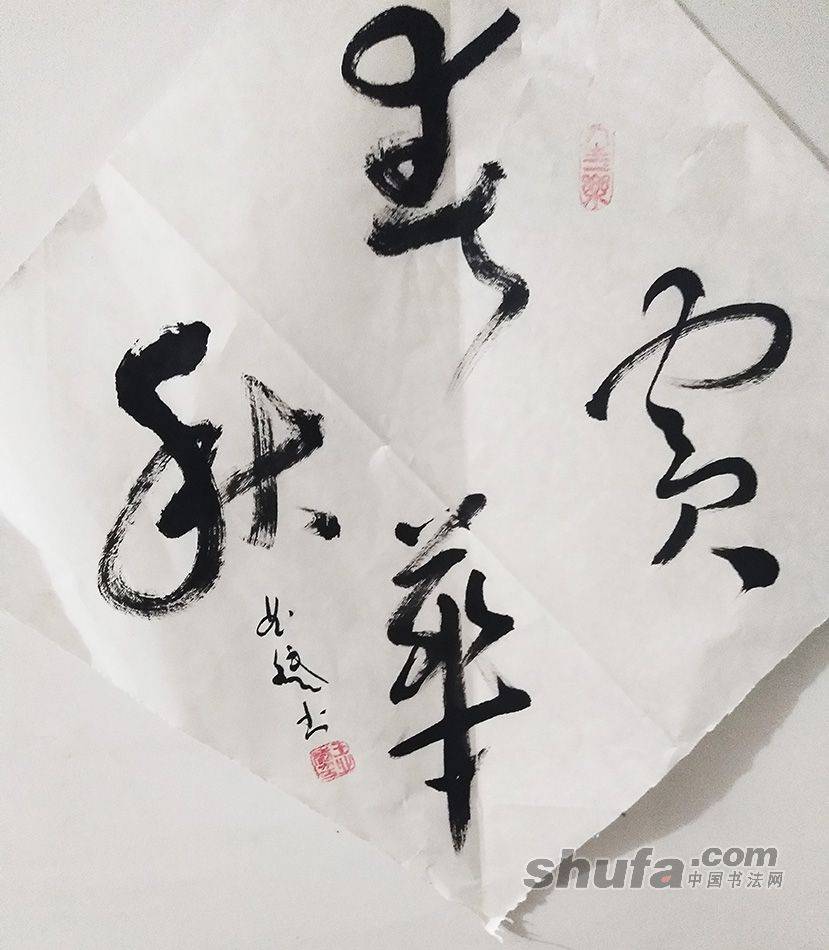 春
華
秋
實
shufa.com
中国书法网